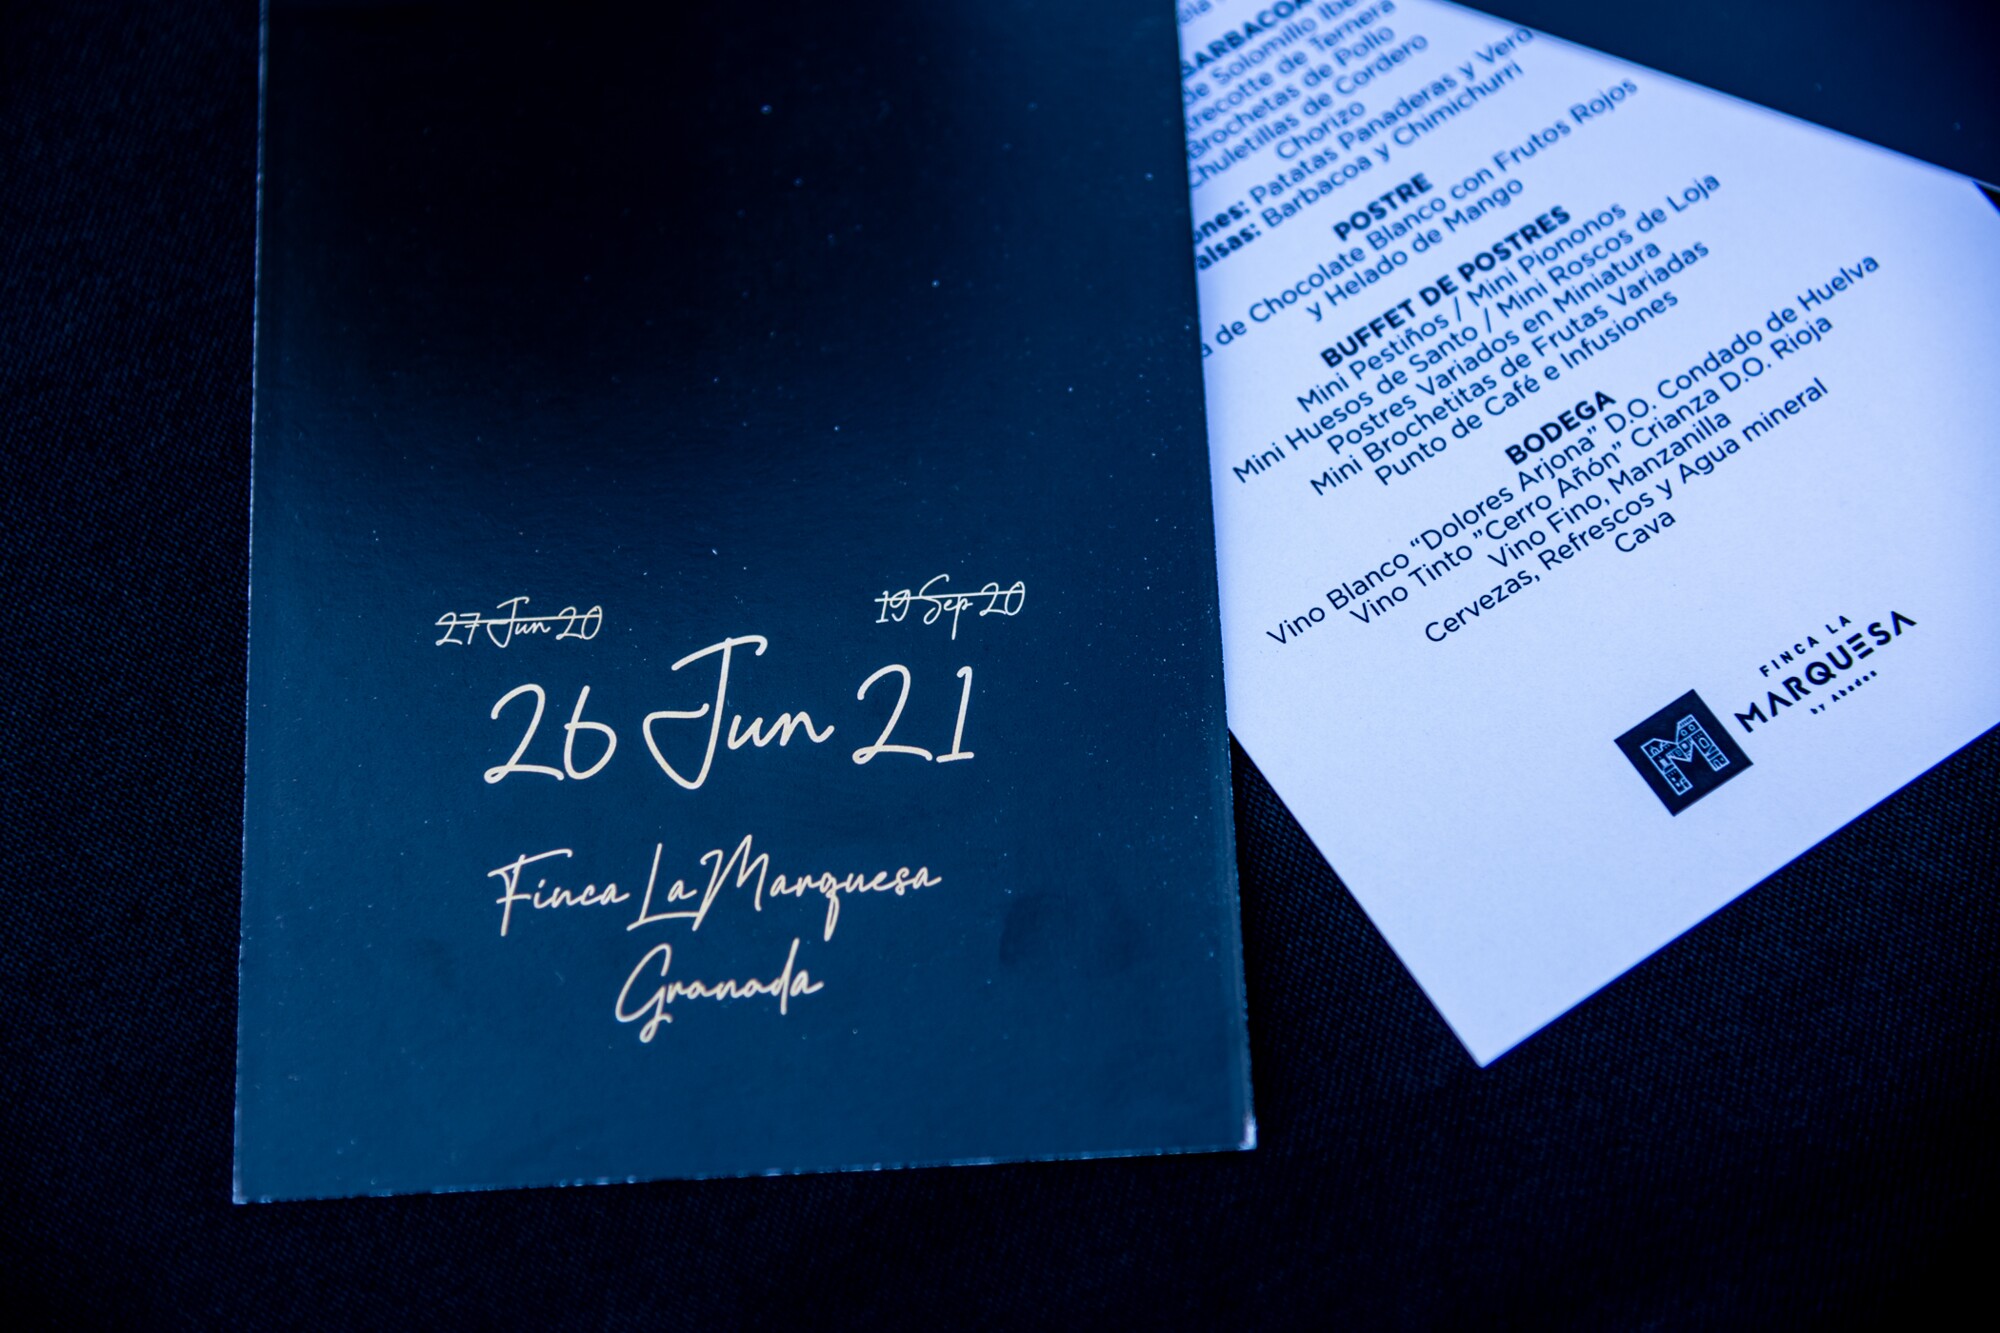 27 Jun 20
19 Sep 20
26 Jun 21
Finca La Marquesa
Granada
BARBACOA
de Solomillo
de Ternera
Brochetas de Pollo
Chuletillas de Cordero
Chorizo
Patatas Panaderas y
Barbacoa y Chimichurri
POSTRE
de Chocolate Blanco con Frutos Rojos
y Helado de Mango
BUFFET DE POSTRES
Mini Pestiños / Mini Piononos
Mini Huesos de Santo / Mini Roscos de Loja
Postres Variados en Miniatura
Mini Brochetitas de Frutas Variadas
Punto de Café e Infusiones
BODEGA
Vino Blanco “Dolores Arjona” D.O. Condado de Huelva
Vino Tinto ”Cerro Añón” Crianza D.O. Rioja
Vino Fino, Manzanilla
Cervezas, Refrescos y Agua mineral
Cava
FINCA LA
MARQUESA
BY Abades